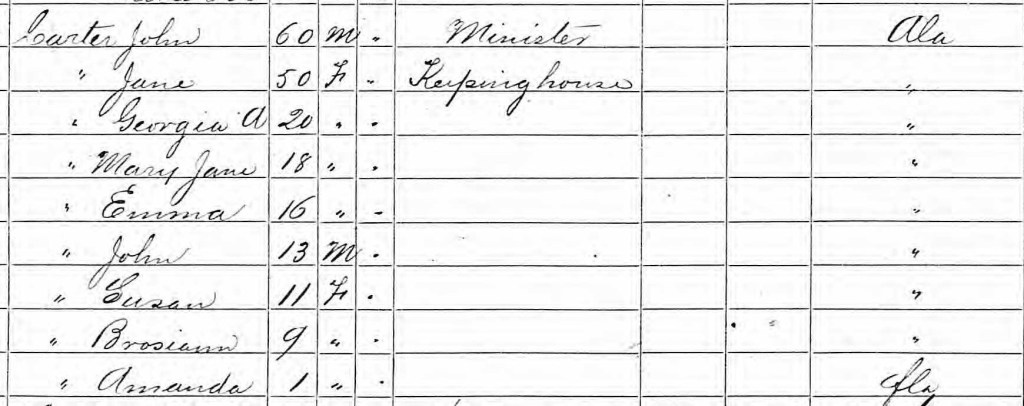 Carter John 60 M " Minister Ala
" Jane 50 F " Keepinghouse "
" Georgia A 20 " " "
" Mary Jane 18 " " "
" Emma 16 " " "
" John 13 M " "
" Susan 11 F " "
" Brosiann 9 " " "
" Amanda 1 " " fla